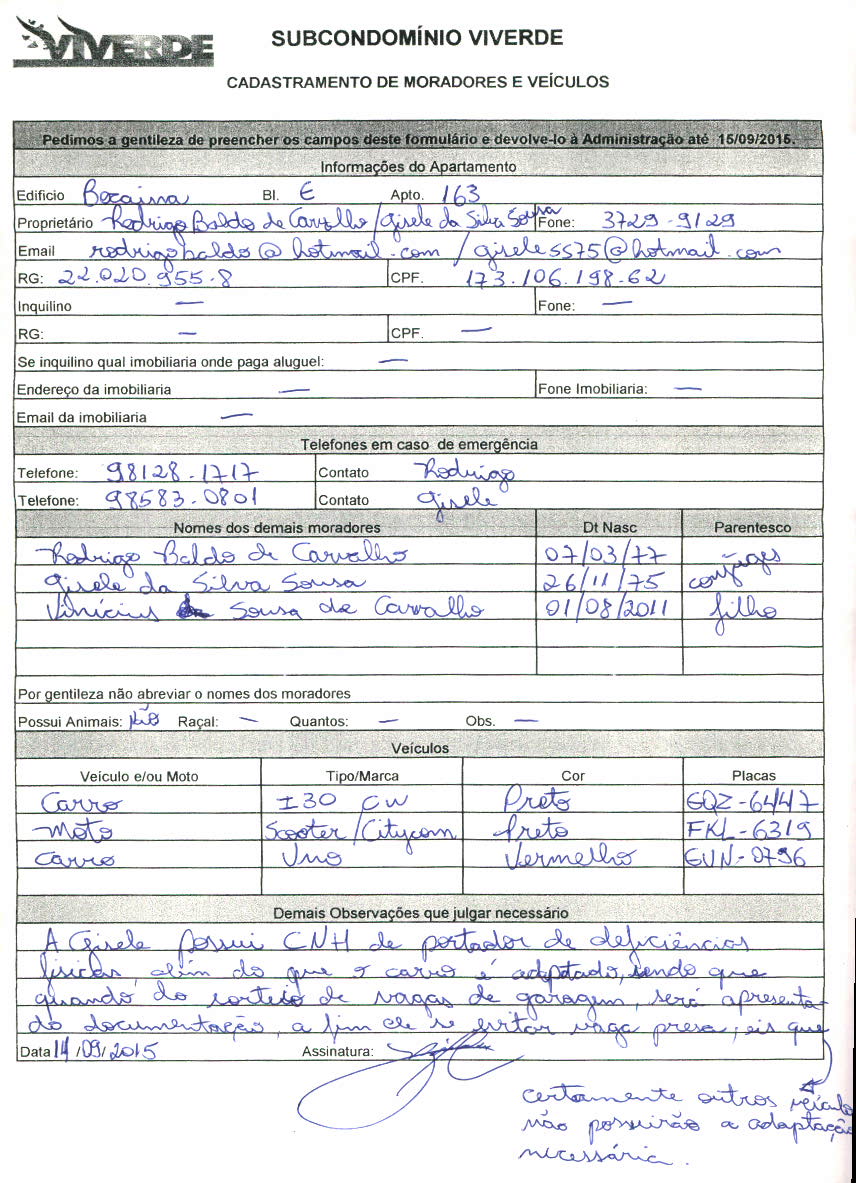 VIVERDE
SUBCONDOMÍNIO VIVERDE
CADASTRAMENTO DE MORADORES E VEÍCULOS
Pedimos a gentileza de preencher os campos deste formulário e devolve-lo à Administração até 15/09/2015.
Informações do Apartamento
Edificio Bocaina Bl. E Apto. 163
Proprietário Rodrigo Baldo de Carvalho / Gisele da Silva Sousa Fone: 3729-9129
Email rodrigobaldo@hotmail.com / gisele5575@hotmail.com
RG: 22.020.955-8 CPF. 173.106.198-62
Inquilino — Fone: —
RG: — CPF. —
Se inquilino qual imobiliaria onde paga aluguel: —
Endereço da imobiliaria — Fone Imobiliaria: —
Email da imobiliaria —
Telefones em caso de emergência
Telefone: 98128-1717 Contato Rodrigo
Telefone: 98583-0801 Contato Gisele
Nomes dos demais moradores Dt Nasc Parentesco
Rodrigo Baldo de Carvalho 07/03/77 conjuges
Gisele da Silva Sousa 26/11/75
Vinicius Sousa de Carvalho 01/08/2011 filho
Por gentileza não abreviar o nomes dos moradores
Possui Animais: não Raçal: — Quantos: — Obs. —
Veículos
Veículo e/ou Moto Tipo/Marca Cor Placas
Carro I30 CW Preto GQZ-6447
Moto Scooter/Citycom Preto FKL-6319
Carro Uno Vermelho GUN-0796
Demais Observações que julgar necessário
A Gisele possui CNH de portador de deficiências
físicas, além do que o carro é adaptado, sendo que
quando do sorteio de vagas de garagem, será apresenta-
do documentação, a fim de se evitar vaga presa, eis que
Data 14/09/2015 Assinatura:
certamente outros veículos
não possuirão a adaptação
necessária.